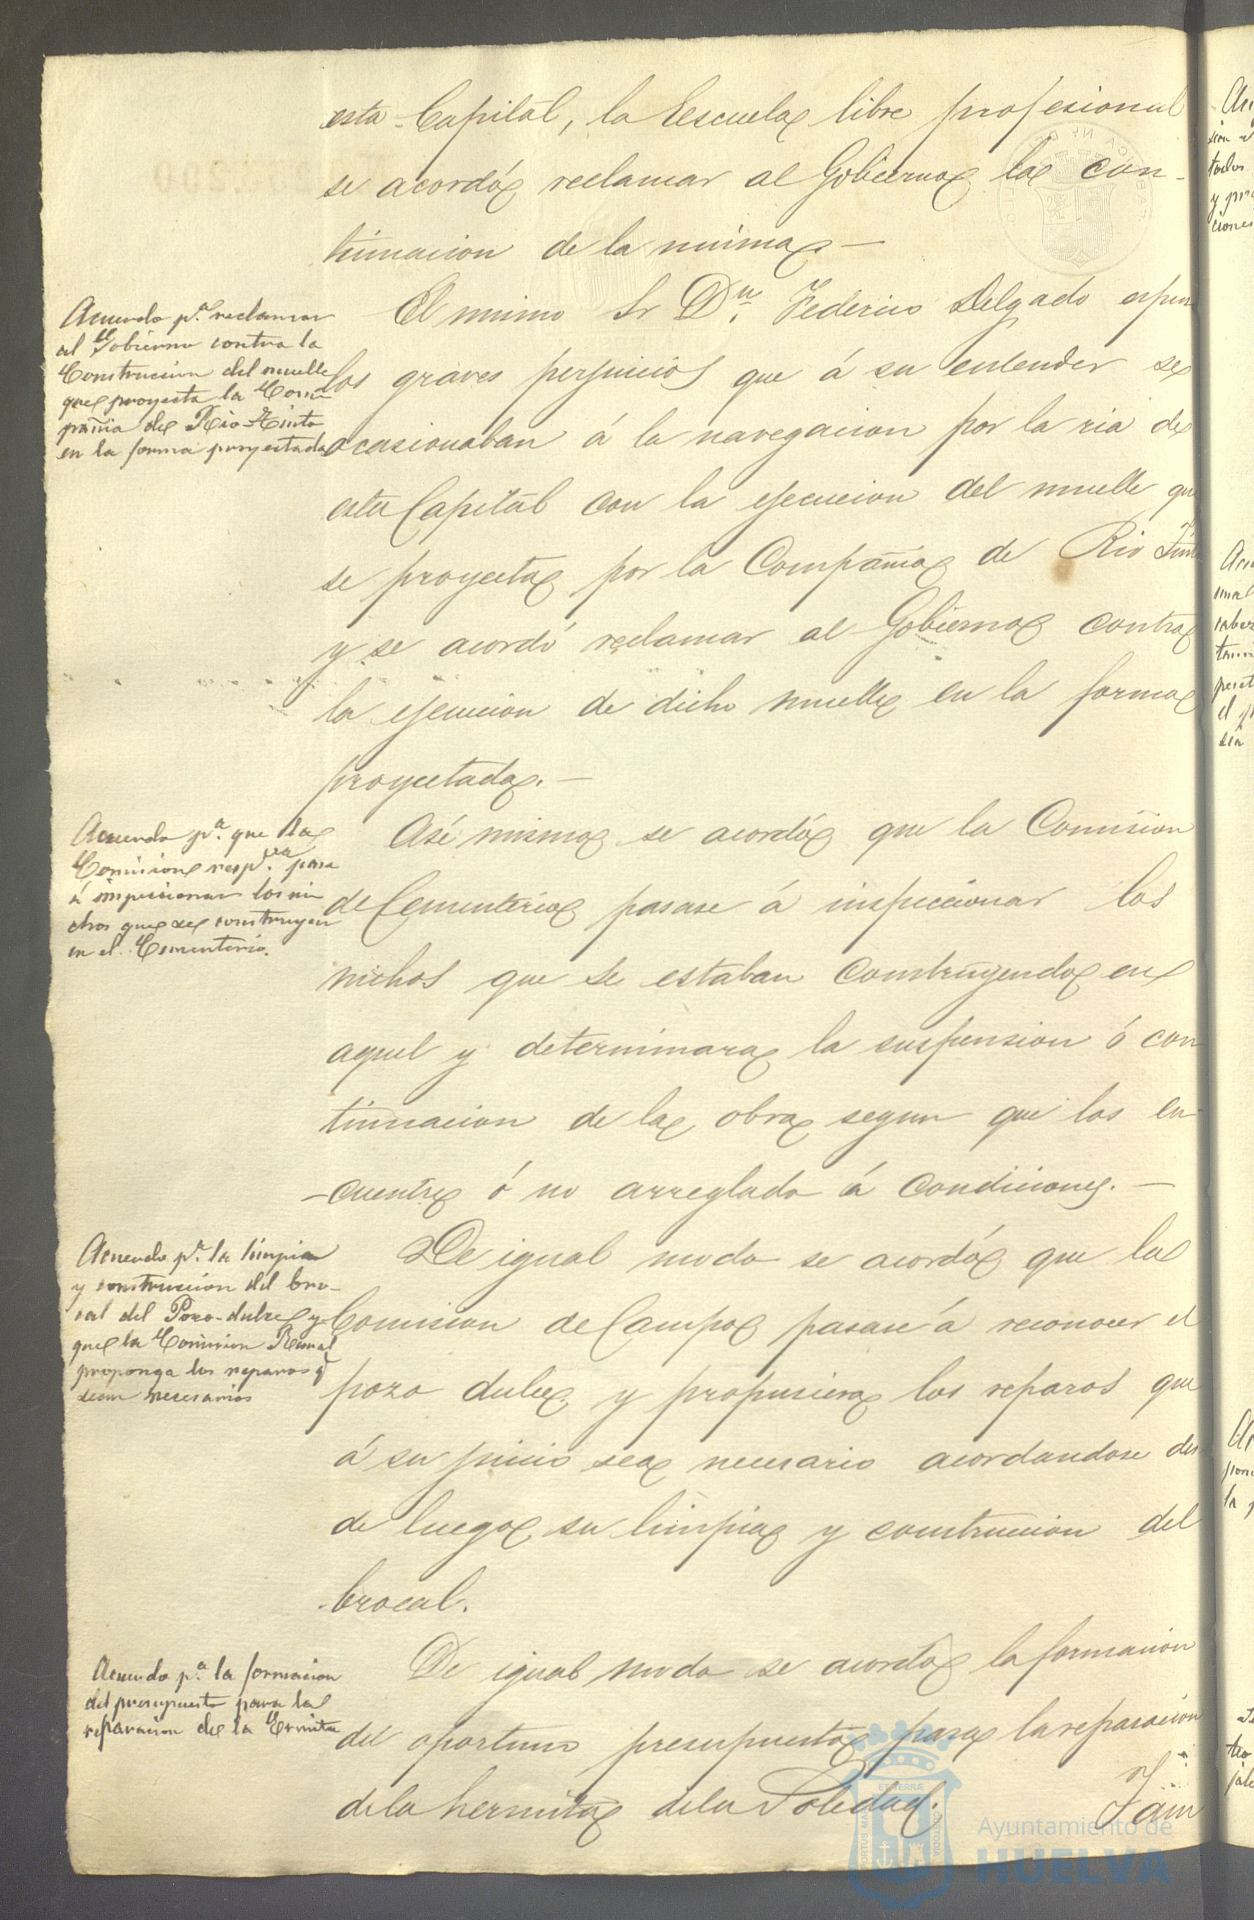 esta Capital, la Escuela libre profesional
se acordó reclamar al Gobierno la con-
tinuacion de la misma.—
Acuerdo p.ª reclamar
al Gobierno contra la
Construccion del muelle
que proyecta la Com-
pañia de Rio-Tinto
en la forma proyectada
El mismo Sr Dn. Federico Delgado espuso
los graves perjuicios que á su entender se
ocasionaban á la navegacion por la ria de
esta Capital con la ejecucion del muelle que
se proyecta por la Compañia de Rio Tinto
y se acordó reclamar al Gobierno contra
la ejecucion de dicho muelle en la forma
proyectada.—
Acuerdo p.ª que la
Comision resp.va pase
á inspeccionar los ni
chos que se construyen
en el Cementerio.
Asé mismo se acordó que la Comision
de Cementerio pasase á inspeccionar los
nichos que se estaban construyendo en
aquel y determinara la suspension ó con
tinuacion de la obra segun que los en
-cuentre ó no arreglado á condiciones.—
Acuerdo p.ª la limpia
y construccion del bro-
cal del Pozo-dulce y
que la Comision Rural
proponga los reparos q.
sean necesarios
De igual modo se acordó que la
Comision de Campo pasase á reconocer el
pozo dulce, y propusiera los reparos que
á su juicio sea necesario acordandose des
de luego su limpia y construccion del
brocal.
Acuerdo p.ª la formacion
del presupuesto para la
reparacion de la Ermita
De igual modo se acordó la formacion
del oportuno presupuesto para la reparacion
de la hermita de la Soledad. Tam
Ayuntamiento de
HUELVA